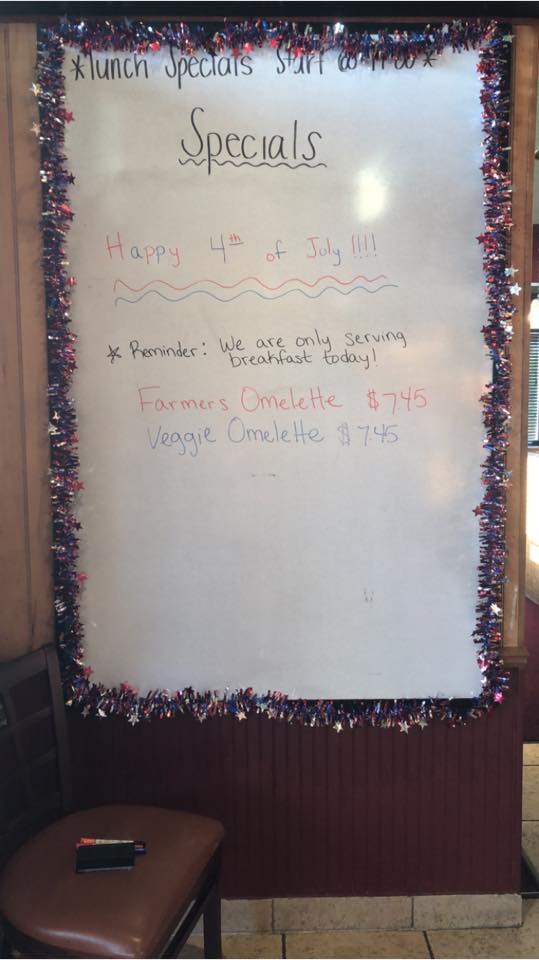 *lunch Specials Start @ 11:00*
Specials
Happy 4th of July!!!!
* Reminder: We are only serving
breakfast today!
Farmers Omelette $7.45
Veggie Omelette $7.45